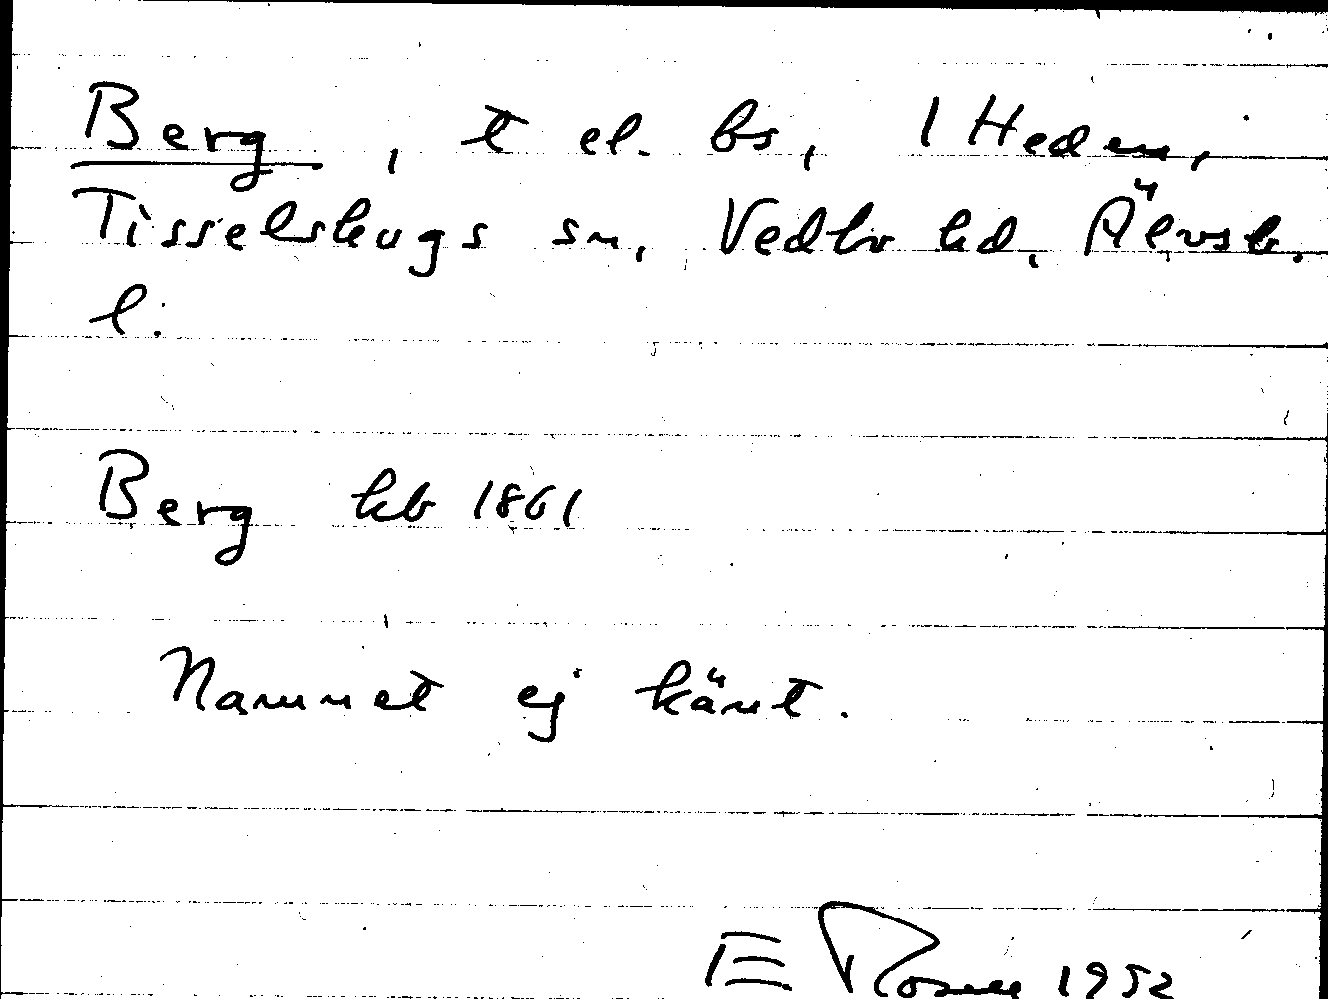 Berg, t el. bs, 1 Heden,
Tisselskogs sn, Vedbo hd, Älvsb.
l.
Berg kb 1861
Namnet ej känt.
E Rosen 1952